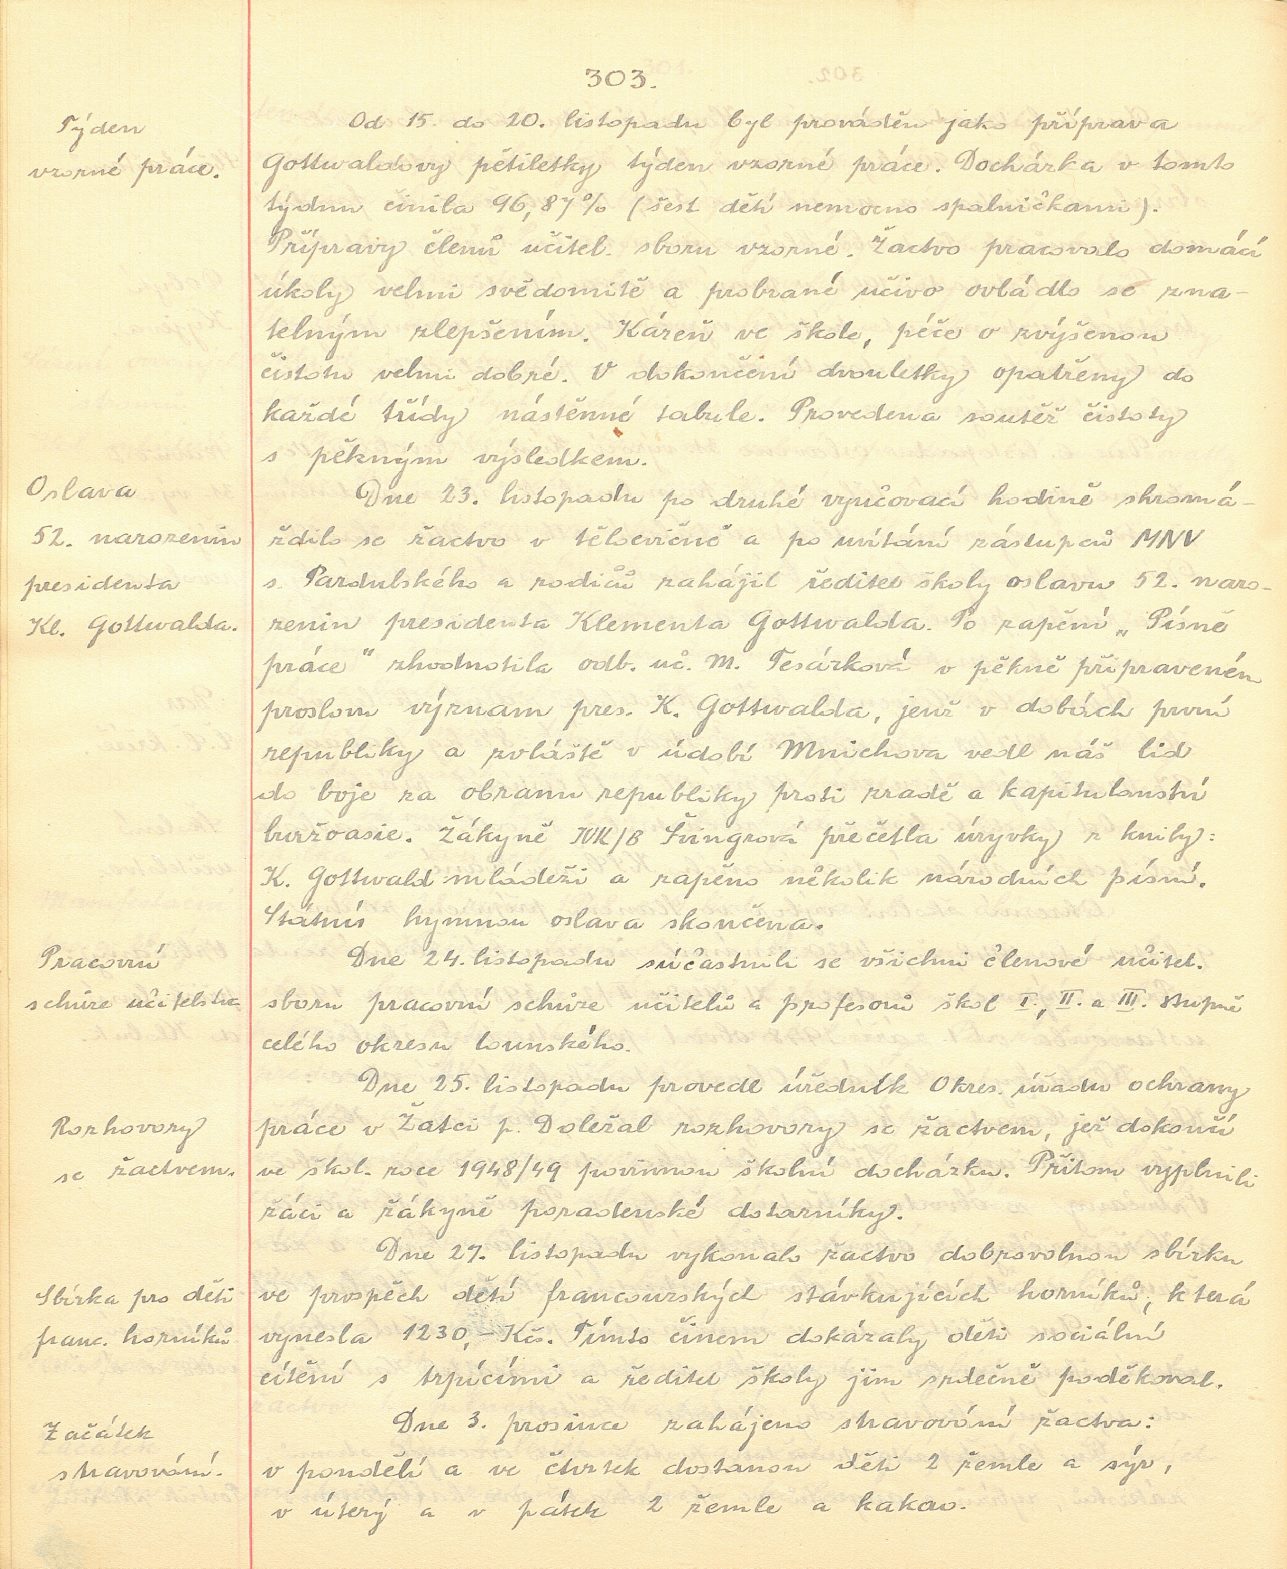 303.
Týden
vzorné práce.
Od 15. do 20. listopadu byl prováděn jako příprava
Gottwaldovy pětiletky týden vzorné práce. Docházka v tomto
týdnu činila 96,87% (šest dětí nemocno spalničkami).
Přípravy členů učitel. sboru vzorné. Žactvo pracovalo domácí
úkoly velmi svědomitě a probrané učivo ovládlo se zna-
telným zlepšením. Kázeň ve škole, péče o zvýšenou
čistotu velmi dobré. V dokončení dvouletky opatřeny do
každé třídy nástěnné tabule. Provedena soutěž čistoty
s pěkným výsledkem.
Oslava
52. narozenin
presidenta
Kl. Gottwalda.
Dne 23. listopadu po druhé vyučovací hodině shromá-
ždilo se žactvo v tělocvičně a po uvítání zástupců MNV
s. Pardubského a rodičů zahájil ředitel školy oslavu 52. naro-
zenin presidenta Klementa Gottwalda. Po zapění „Písně
práce" zhodnotila odb. uč. M. Tesárková v pěkně připraveném
proslovu význam pres. K. Gottwalda, jenž v dobách první
republiky a zvláště v údobí Mnichova vedl náš lid
do boje za obranu republiky proti zradě a kapitulantství
buržoasie. Žákyně IVK/B Švingrová přečetla úryvky z knihy:
K. Gottwald mládeži a zapěno několik národních písní.
Státní hymnou oslava skončena.
Pracovní
schůze učitelstva
Dne 24. listopadu súčastnili se všichni členové učitel.
sboru pracovní schůze učitelů a profesorů škol I., II. a III. stupně
celého okresu lounského.
Rozhovory
se žactvem.
Dne 25. listopadu provedl úředník Okres. úřadu ochrany
práce v Žatci p. Doležal rozhovory se žactvem, jež dokončí
ve škol. roce 1948/49 povinnou školní docházku. Přitom vyplnili
žáci a žákyně poradenské dotazníky.
Sbírka pro děti
franc. horníků
Dne 27. listopadu vykonalo žactvo dobrovolnou sbírku
ve prospěch dětí francouzských stávkujících horníků, která
vynesla 1230,- Kčs. Tímto činem dokázaly děti sociální
cítění s trpícími a ředitel školy jim srdečně poděkoval.
Začátek
stravování.
Dne 3. prosince zahájeno stravování žactva:
v pondělí a ve čtvrtek dostanou děti 2 žemle a sýr,
v úterý a v pátek 2 žemle a kakao.